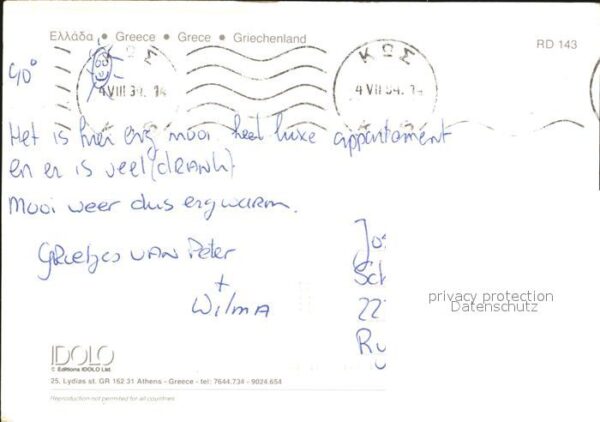 Ελλάδα • Greece • Grece • Griechenland
RD 143
ΚΩΣ
4 VIII 94. 14
40°
Het is hier erg mooi heel luxe appartament
en er is veel (DRANK)
Mooi weer dus erg warm.
GRoetjes VAN Peter
+
WilmA
Jos
Sch
22
Ru
privacy protection
Datenschutz
IDOLO
© Editions IDOLO Ltd.
25, Lydias st. GR 162 31 Athens - Greece - tel: 7644.734 - 9024.654
Reproduction not permited for all countries